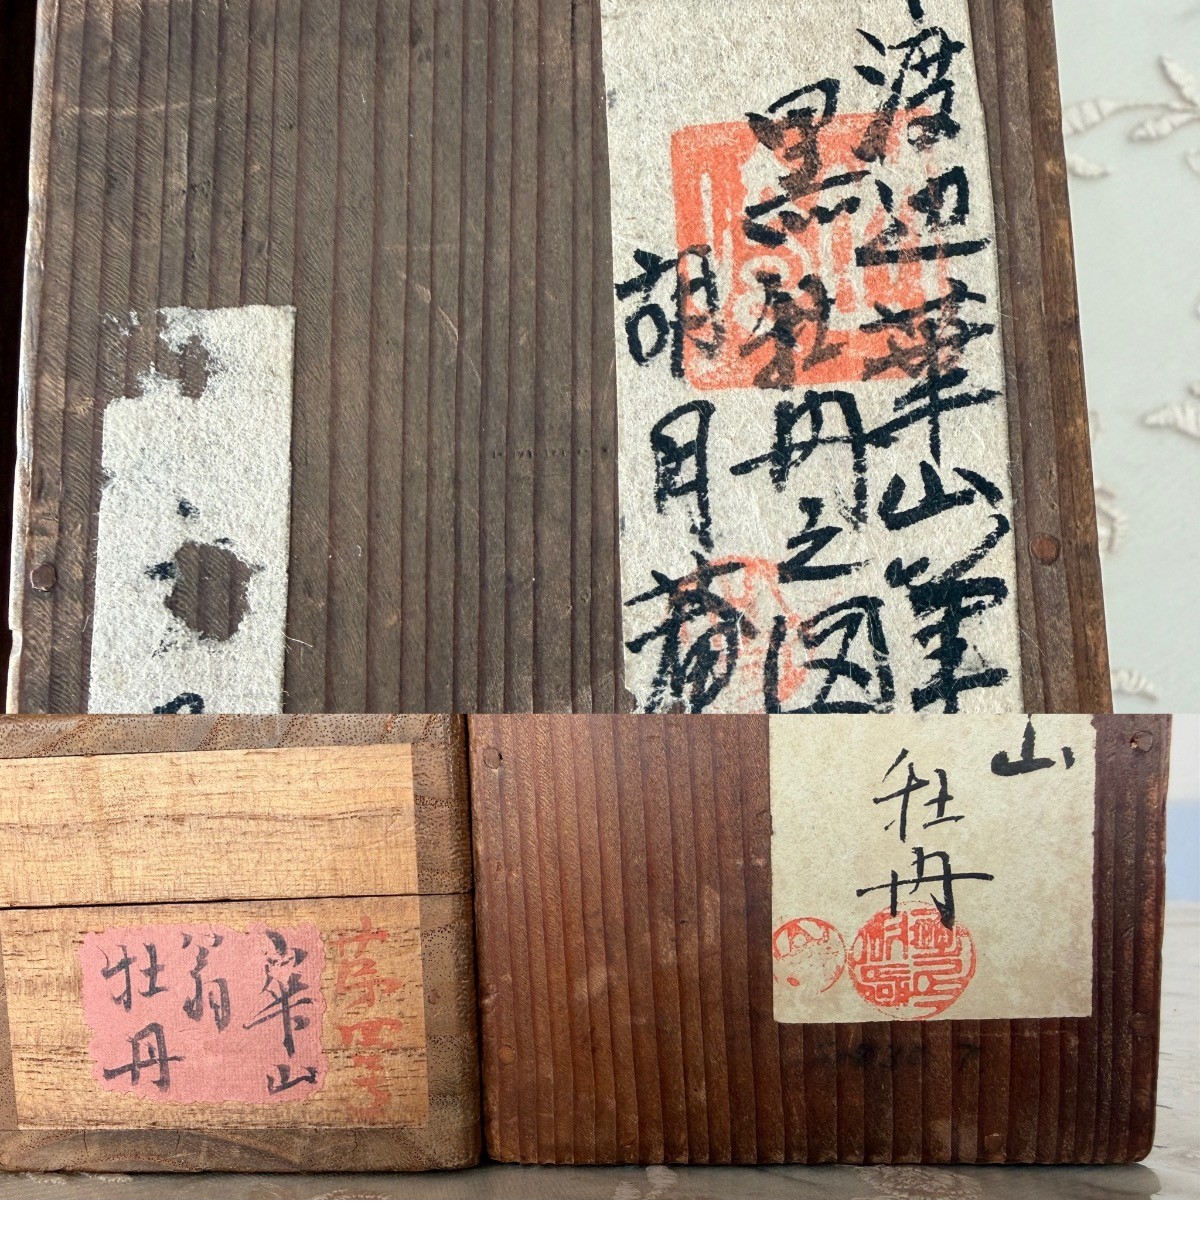 渡辺華山筆
黒牡丹之図
胡月
山
牡丹
華山
翁
牡丹